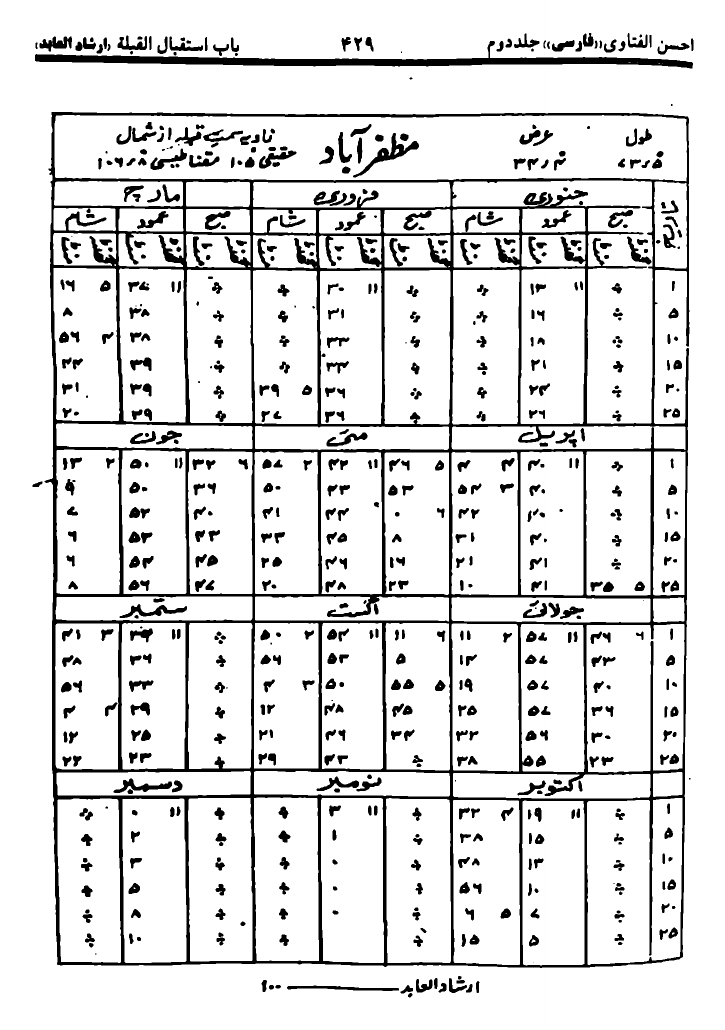 احسن الفتاوی «فارسی» جلد دوم ۴۲۹ باب استقبال القبلة (ارشاد العابد)
طول عرض مظفر آباد زاویہ سمت قبلہ از شمال
۷۳٫۵ ۳۴٫۴ حقیقی ۱۰۵ مقناطیسی ۱۰۶٫۸
جنوری فروری مارچ
صبح عمود شام صبح عمود شام صبح عمود شام
گھنٹہ منٹ گھنٹہ منٹ گھنٹہ منٹ گھنٹہ منٹ گھنٹہ منٹ گھنٹہ منٹ گھنٹہ منٹ گھنٹہ منٹ گھنٹہ منٹ
۱ ÷ ۱۱ ۱۳ ÷ ÷ ۱۱ ۳۰ ÷ ÷ ۱۱ ۳۷ ۵ ۱۶
۵ ÷ ۱۶ ÷ ÷ ۳۱ ÷ ÷ ۳۸ ۸
۱۰ ÷ ۱۸ ÷ ÷ ۳۳ ÷ ÷ ۳۸ ۴ ۵۶
۱۵ ÷ ۲۱ ÷ ÷ ۳۴ ÷ ÷ ۳۹ ۴۴
۲۰ ÷ ۲۴ ÷ ÷ ۳۶ ۵ ۳۹ ÷ ۳۹ ۳۱
۲۵ ÷ ۲۶ ÷ ÷ ۳۶ ۲۷ ÷ ۳۹ ۲۰
اپریل مئی جون
۱ ÷ ۱۱ ۴۰ ۴ ۴ ۵ ۴۶ ۱۱ ۴۲ ۲ ۵۷ ۶ ۳۲ ۱۱ ۵۰ ۲ ۱۳
۵ ÷ ۴۰ ۳ ۵۴ ۵۳ ۴۳ ۵۰ ۳۶ ۵۰ ۹
۱۰ ÷ ۴۰ ۴۲ ۶ ۰ ۴۴ ۴۱ ۴۰ ۵۲ ۷
۱۵ ÷ ۴۰ ۳۱ ۸ ۴۵ ۳۳ ۴۳ ۵۳ ۶
۲۰ ÷ ۴۱ ۲۱ ۱۶ ۴۶ ۲۵ ۴۵ ۵۴ ۶
۲۵ ۵ ۳۵ ۴۱ ۱۰ ۲۳ ۴۸ ۲۰ ۴۷ ۵۶ ۸
جولائی اگست ستمبر
۱ ۶ ۴۶ ۱۱ ۵۷ ۲ ۱۱ ۶ ۱۱ ۱۱ ۵۴ ۲ ۵۰ ÷ ۱۱ ۳ ۴۱
۵ ۴۳ ۵۷ ۱۴ ۵ ۵۳ ۵۶ ÷ ۳۶ ۴۸
۱۰ ۴۰ ۵۷ ۱۹ ۵ ۵۵ ۵۰ ۳ ۴ ÷ ۳۳ ۵۶
۱۵ ۳۶ ۵۷ ۲۵ ۴۵ ۴۸ ۱۲ ÷ ۲۹ ۴ ۴
۲۰ ۳۰ ۵۶ ۳۲ ۳۴ ۴۶ ۲۱ ÷ ۲۵ ۱۲
۲۵ ۲۳ ۵۵ ۳۸ ÷ ۴۳ ۲۹ ÷ ۲۳ ۲۲
اکتوبر نومبر دسمبر
۱ ÷ ۱۱ ۱۹ ۴ ۳۲ ÷ ۱۱ ۳ ÷ ÷ ۱۱ ۰ ÷
۵ ÷ ۱۵ ۳۸ ÷ ۱ ÷ ÷ ۲ ÷
۱۰ ÷ ۱۳ ۴۸ ÷ ۰ ÷ ÷ ۳ ÷
۱۵ ÷ ۱۰ ۵۶ ÷ ۰ ÷ ÷ ۵ ÷
۲۰ ÷ ۷ ۵ ۶ ÷ ۰ ÷ ÷ ۸ ÷
۲۵ ÷ ۵ ۱۵ ÷ ÷ ÷ ۱۰ ÷
ارشاد العابد ــــــ ۱۰۰